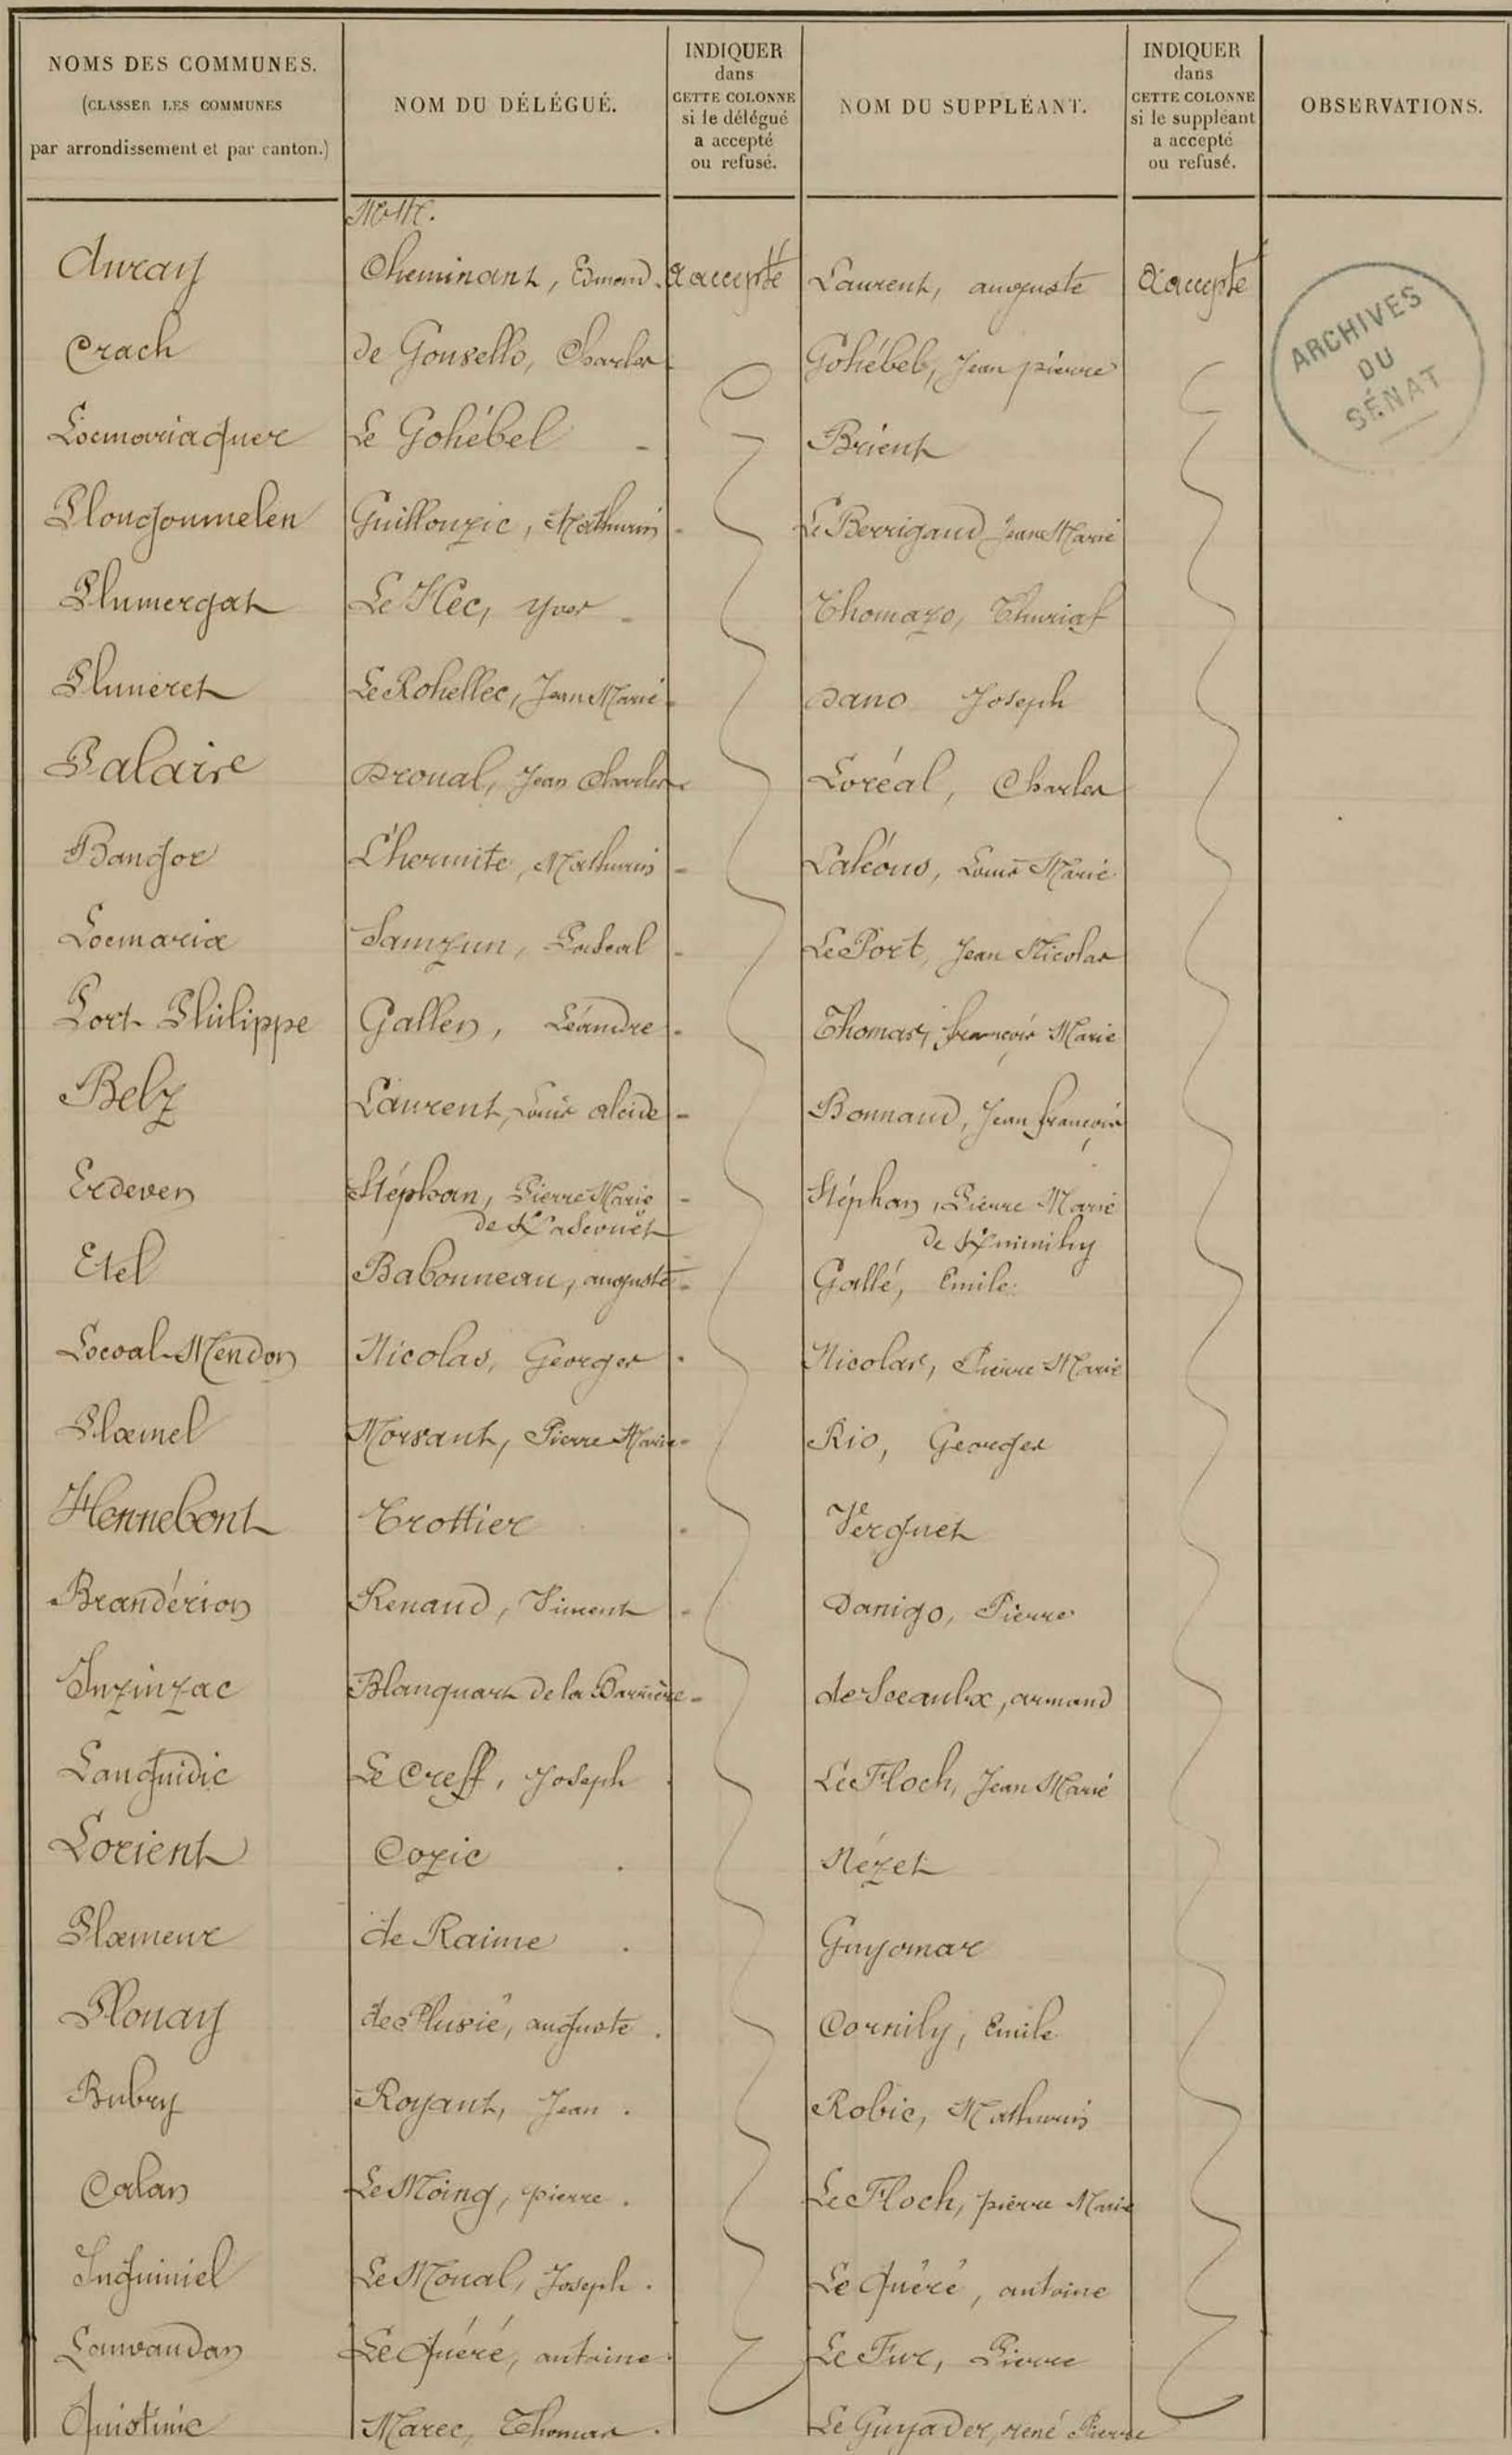 NOMS DES COMMUNES.
(CLASSER LES COMMUNES
par arrondissement et par canton.)
NOM DU DÉLÉGUÉ.
INDIQUER
dans
CETTE COLONNE
si le délégué
a accepté
ou refusé.
NOM DU SUPPLÉANT.
INDIQUER
dans
CETTE COLONNE
si le suppléant
a accepté
ou refusé.
OBSERVATIONS.
MM.
Auray Cheminant, Edmond. a accepté Laurent, auguste a accepté
ARCHIVES
DU
SÉNAT
Crach de Gousello, Charles Gohébel, Jean pierre
Locmariaquer Le Gohébel - Brient
Plougoumelen Guillouzic, Mathurin - Le Berrigaud Jean Marie
Plumergat Le Hec, Yves - Thomazo, Thuriaf
Pluneret Le Rohellec, Jean Marie - Dano Joseph
Palaise Droual, Jean Charles - Loréal, Charles
Bangor L'hermite, Mathurin - Laléous, Louis Marie
Locmaria Samzun, Pascal - Le Port, Jean Nicolas
Port-Philippe Gallen, Léandre - Thomas, françois Marie
Belz Laurent, Louis alcide - Bonnaud, Jean françois
Erdeven Stéphan, Pierre Marie - Stéphan, Pierre Marie
de Kadouët de Kminihy
Etel Babonneau, auguste - Gallé, Emile
Locoal-Mendon Nicolas, Georges - Nicolas, Pierre Marie
Ploemel Morvant, Pierre Marie - Rio, Georges
Hennebont Trottier - Verguet
Brandérion Renaud, Vincent - Danigo, Pierre
Inzinzac Blanquart de la Barrière - de Sceaulx, armand
Languidic Le Creff, Joseph . Le Floch, Jean Marie
Lorient Cozic . Nézet
Ploemeur de Raime . Guyomar
Plouay de Plusié, auguste . Cornily, Emile
Bubry Royant, Jean . Robic, Mathurin
Calan Le Moing, pierre . Le Floch, pierre Marie
Inguiniel Le Moual, Joseph . Le Quéré, antoine
Lanvaudan Le Quéré, antoine . Le Fur, Pierre
Quistinic Marec, Thomas . Le Guyader, rené Pierre